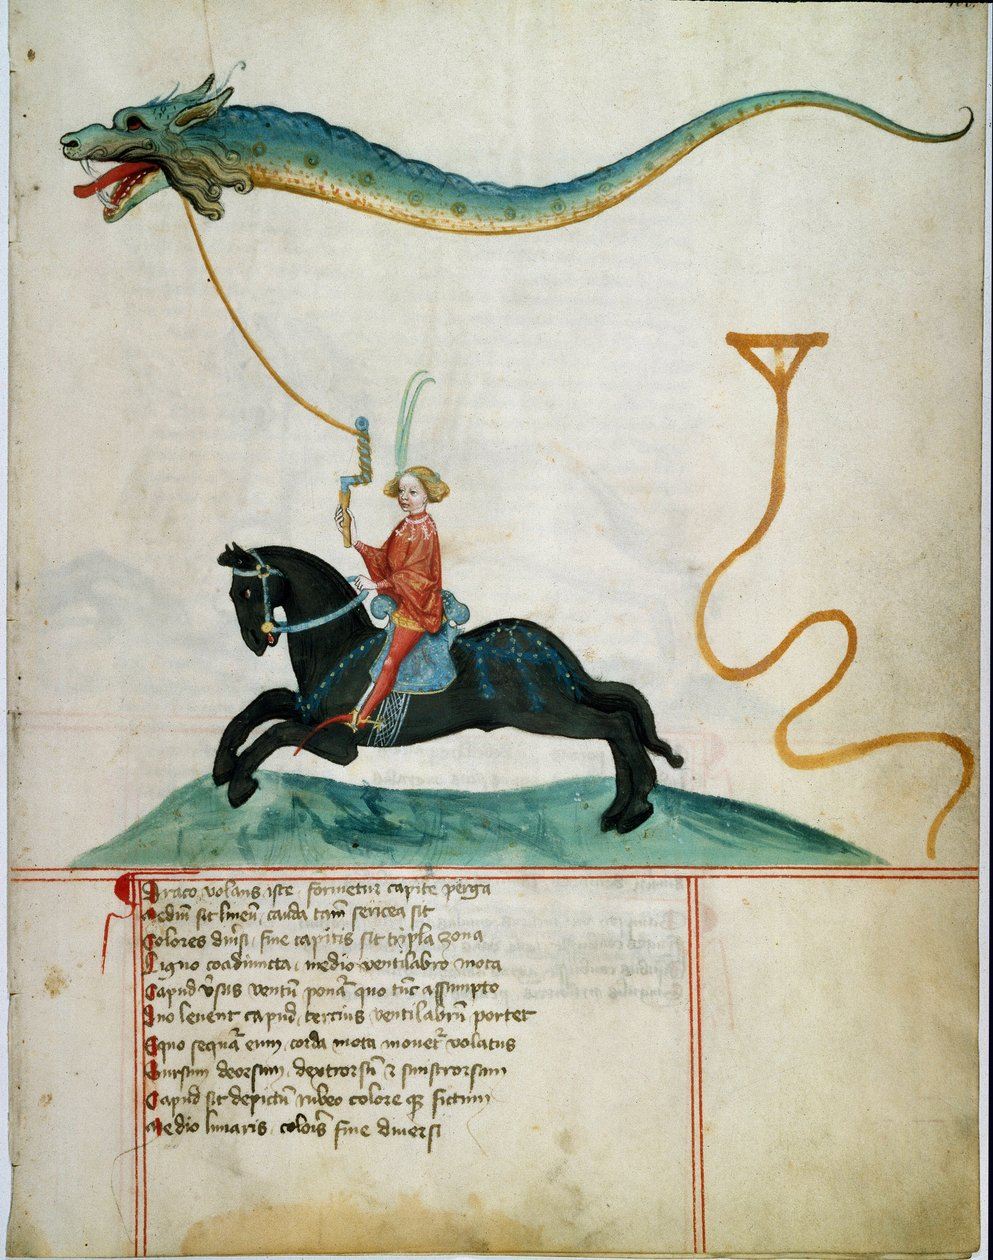 Draco volans iste formetur capite perga
Mediū sit lineū, cauda tamē sericea sit
Colores dūsi, fine capitis sit tripla zona
Ligno coadiuncta, medio ventilabro mota
Capud vsus ventū ponat̄ quo tūc assumpto
Duo levent capud, tercius ventilabrū portet
Equo sequat̄ eum, corda mota movet̄ volatus
Sursum deorsum, dextrorsū & sinistrorsum
Capud sit depictū rubeo colore &#10;fictum
Medio lunaris, coloris fine diversi